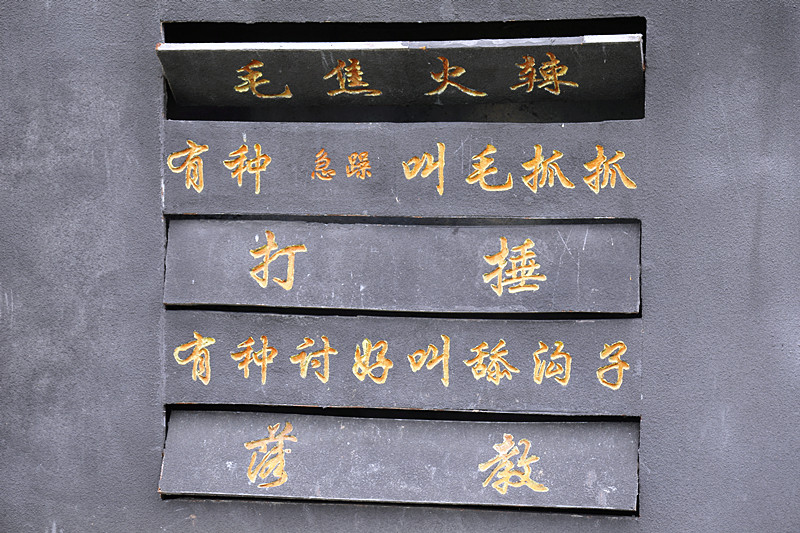 毛焦火辣
有种急躁叫毛抓抓
打捶
有种讨好叫舔沟子
落教